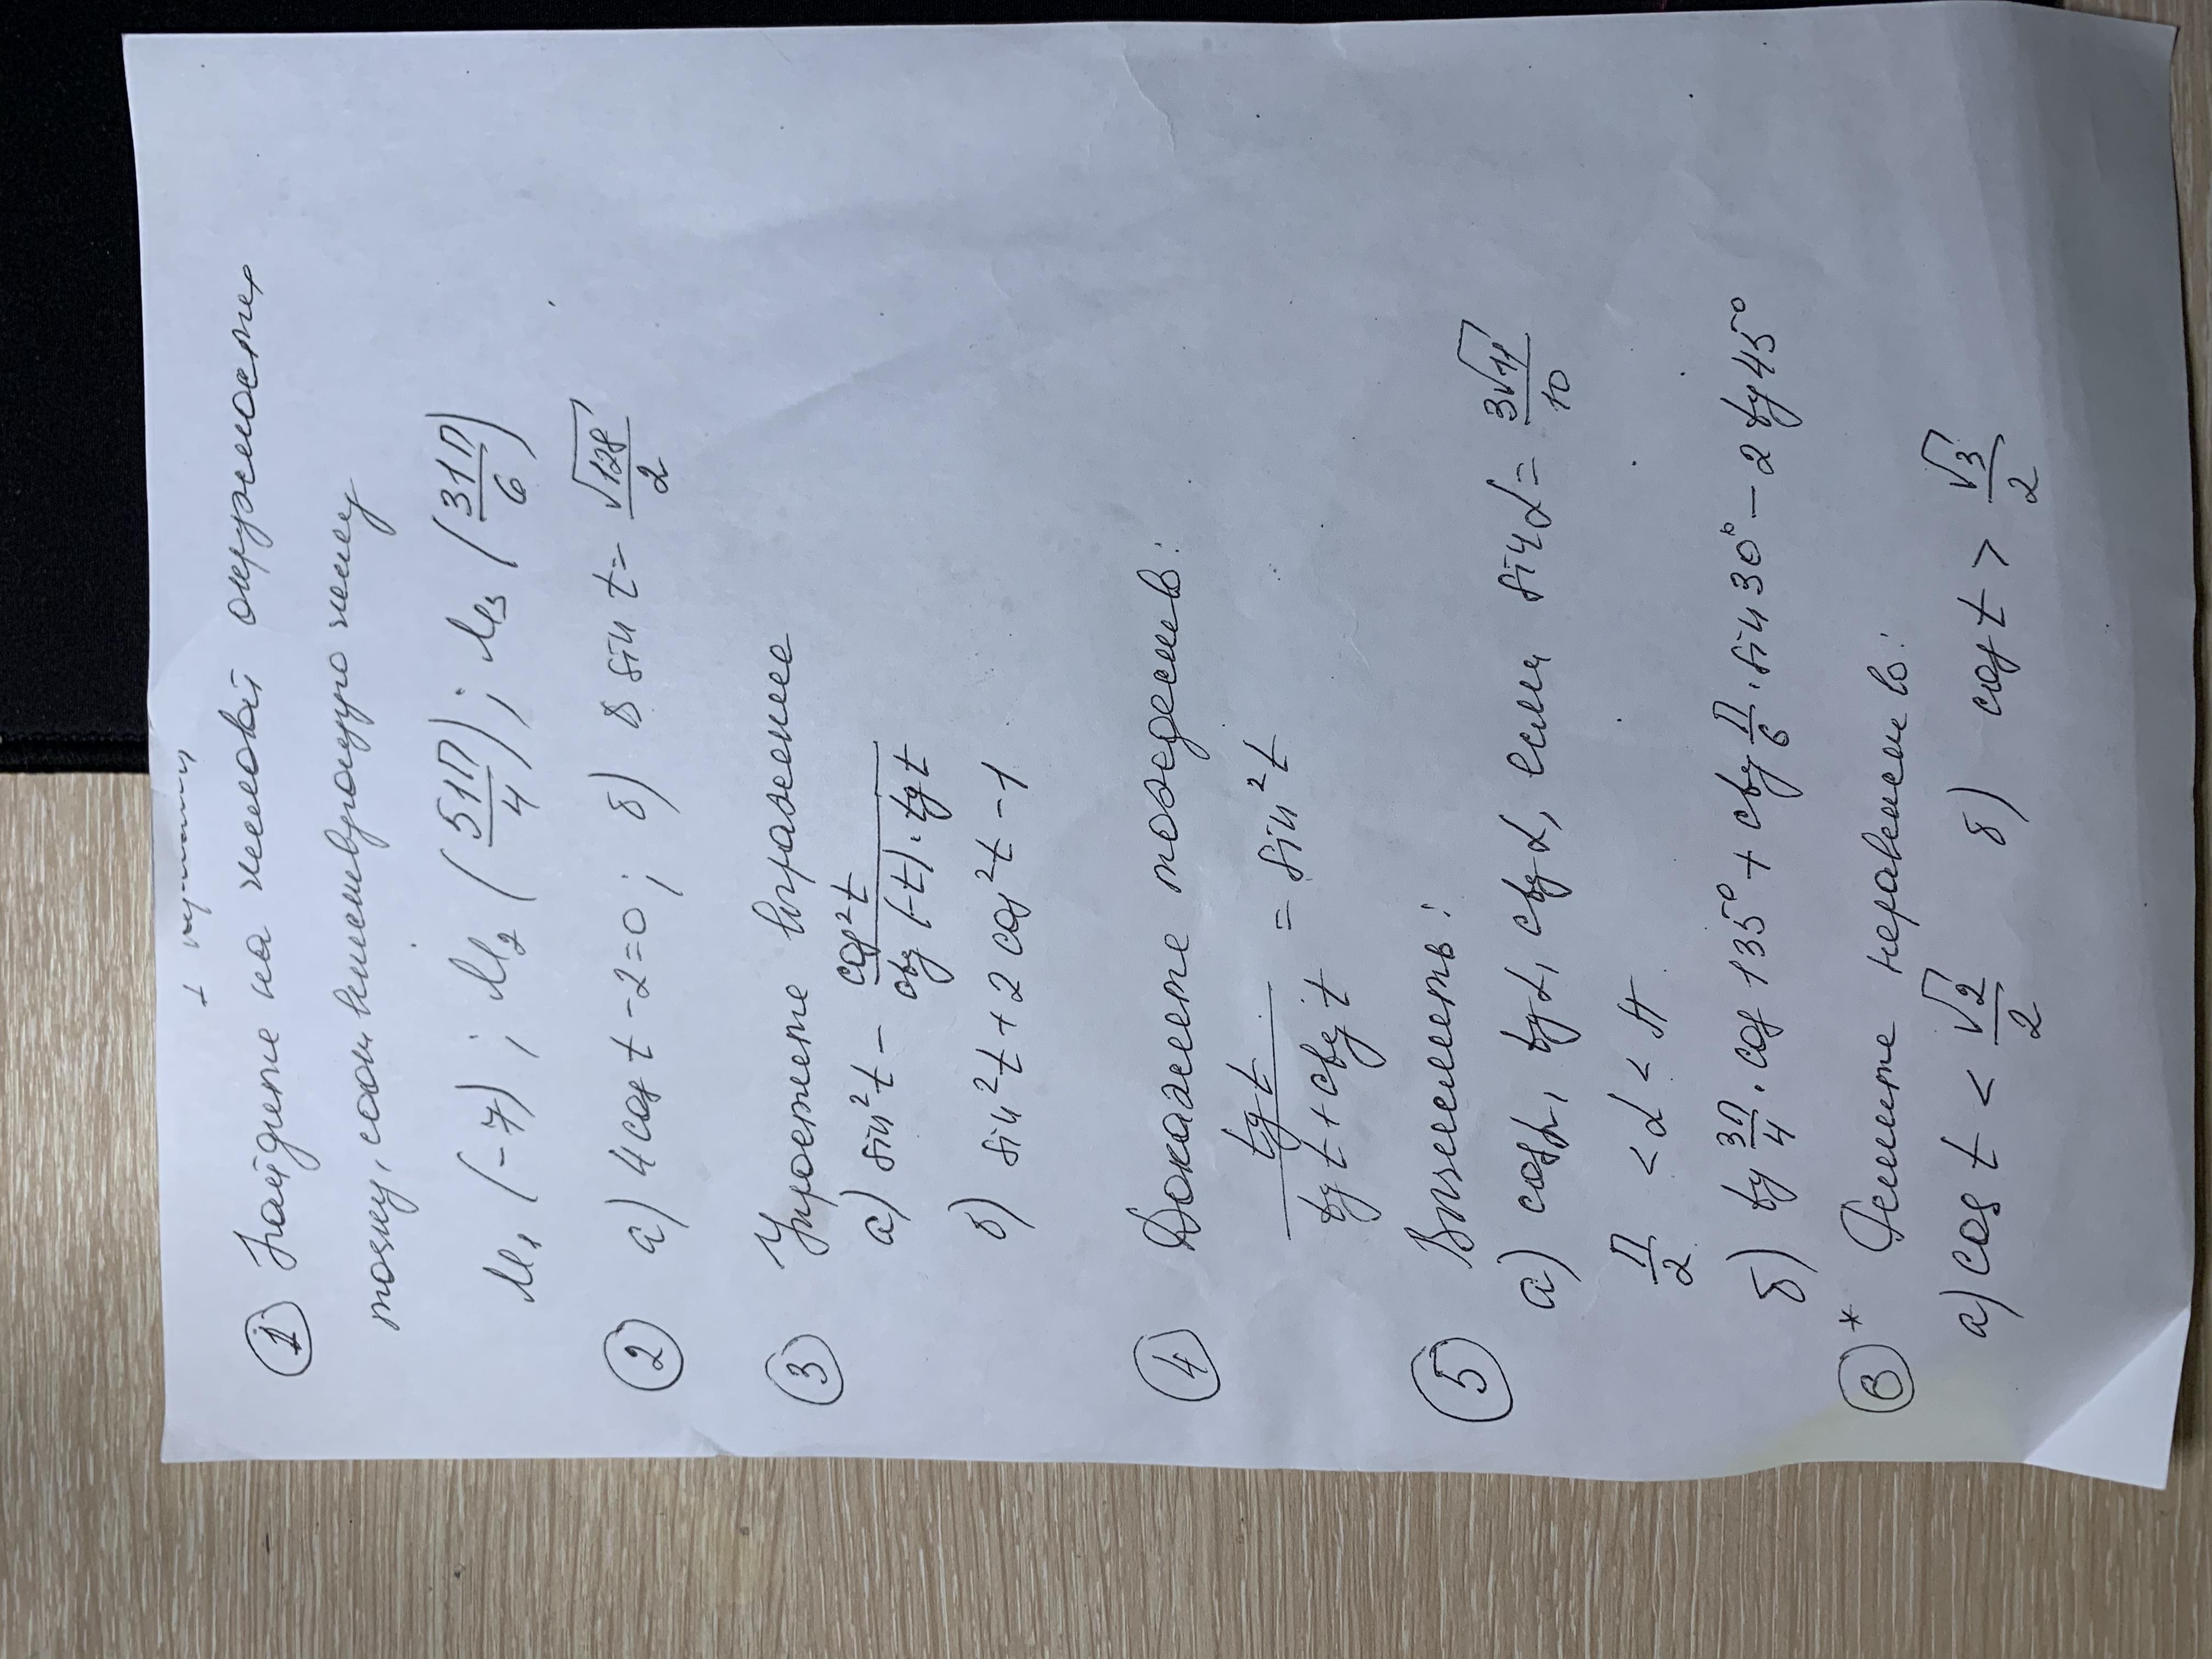 ①  Найдите на числовой окружности
точку, соответствующую числу
M₁ (-7) ; M₂ (51П/4) ; M₃ (31П/6)
②  а) 4cos t - 2 = 0 ;  б) 8 sin t = √128/2
③  Упростите выражение
а) sin²t - cos²t/(ctg (-t) · tg t)
б) sin²t + 2 cos²t - 1
④  Докажите тождеств:
tg t/(tg t + ctg t) = sin²t
⑤  Вычислить:
а) cos α, tg α, ctg α, если sin α = 3√11/10
П/2 < α < π
б) tg 3П/4 · cos 135° + ctg П/6 · sin 30° - 2 tg 45°
⑥*  Решите неравенств:
а) cos t < √2/2  б) cos t > √3/2